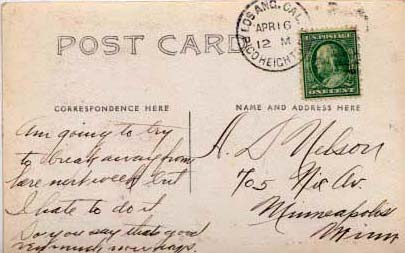 POST CARD
LOS ANG. CAL.
APR 16
12 M
PICO HEIGHTS
U.S. POSTAGE
ONE CENT
CORRESPONDENCE HERE
NAME AND ADDRESS HERE
Am going to try
to break away from
here next week but
I hate to do it
So you say thats good
very much
A. D Nelson
705 Nic Av.
Minneapolis
Minn